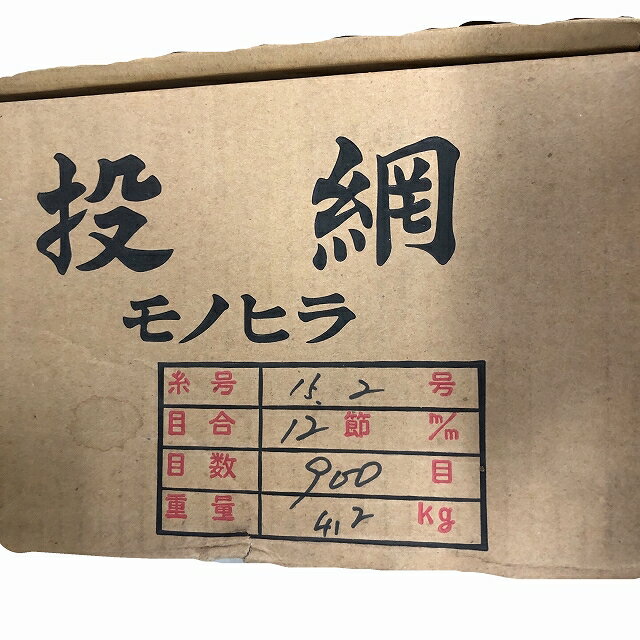 投網
モノヒラ
糸号 15.2 号
目合 12 節 m/m
目数 900 目
重量 4.2 kg